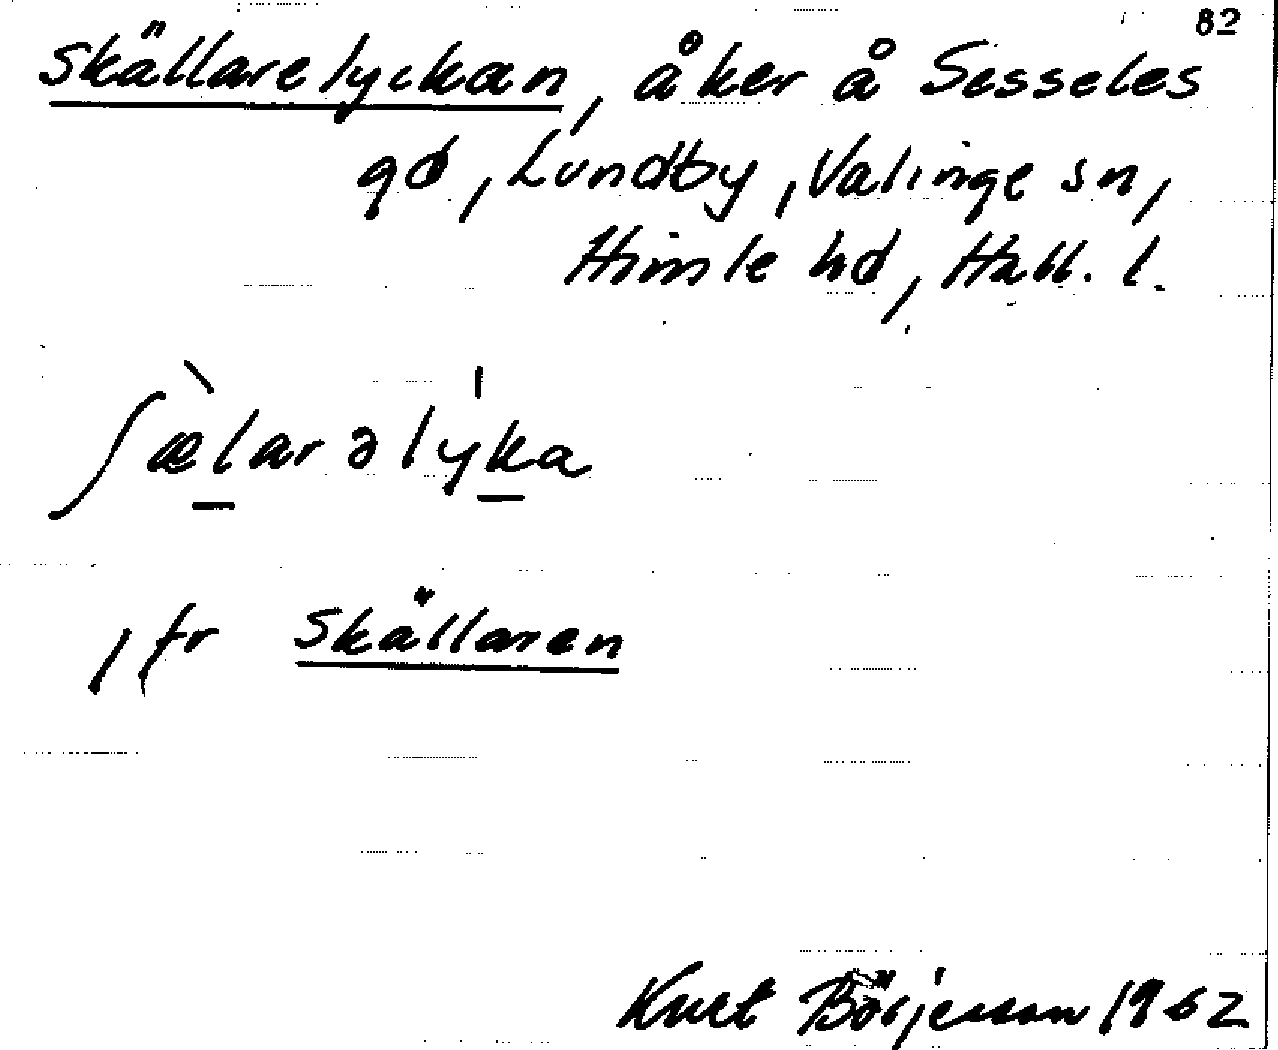 82
Skällarelyckan, åker å Sesseles
gd, Lundby, Valinge sn,
Himle hd, Hall. l.
ʃæ̀l̠arəlýk̠a
Jfr Skällaren
Kurt Börjesson 1962